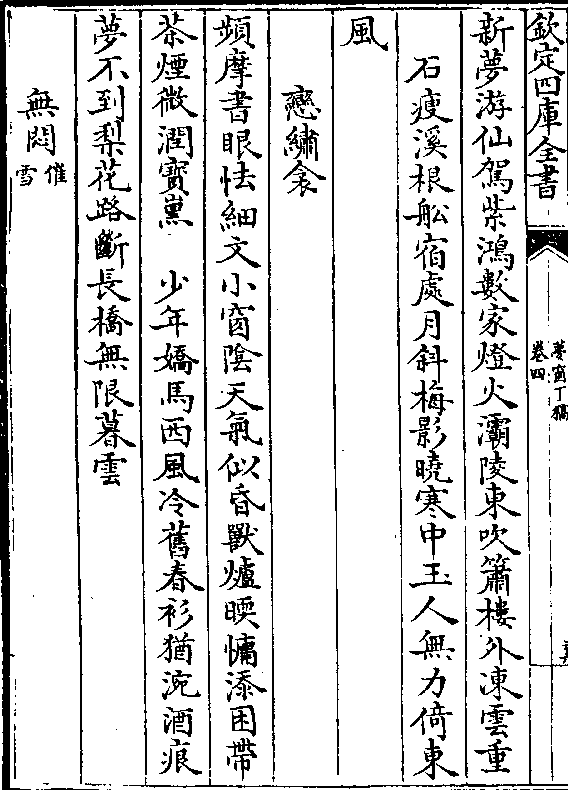 欽定四庫全書
夢窗丁稿
卷四
新夢游仙駕紫鴻數家燈火灞陵東吹簫樓外凍雲重
石瘦溪根船宿處月斜梅影曉寒中玉人無力倚東
風
戀繡衾
頻摩書眼怯細文小窗陰天氣似昏獸爐暖慵添困帶
茶煙微潤寳薰　少年嬌馬西風冷舊春衫猶涴酒痕
夢不到梨花路斷長橋無限暮雲
無悶催雪